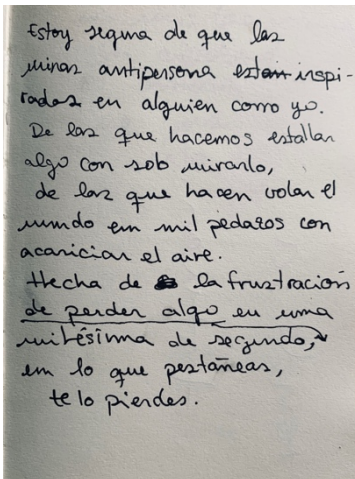 Estoy segura de que las
minas antipersona estan inspi-
radas en alguien como yo.
De las que hacemos estallar
algo con solo mirarlo,
de las que hacen volar el
mundo em mil pedazos con
acariciar el aire.
Hecha de la frustración
de perder algo en una
milésima de segundo,
em lo que pestañeas,
te lo pierdes.